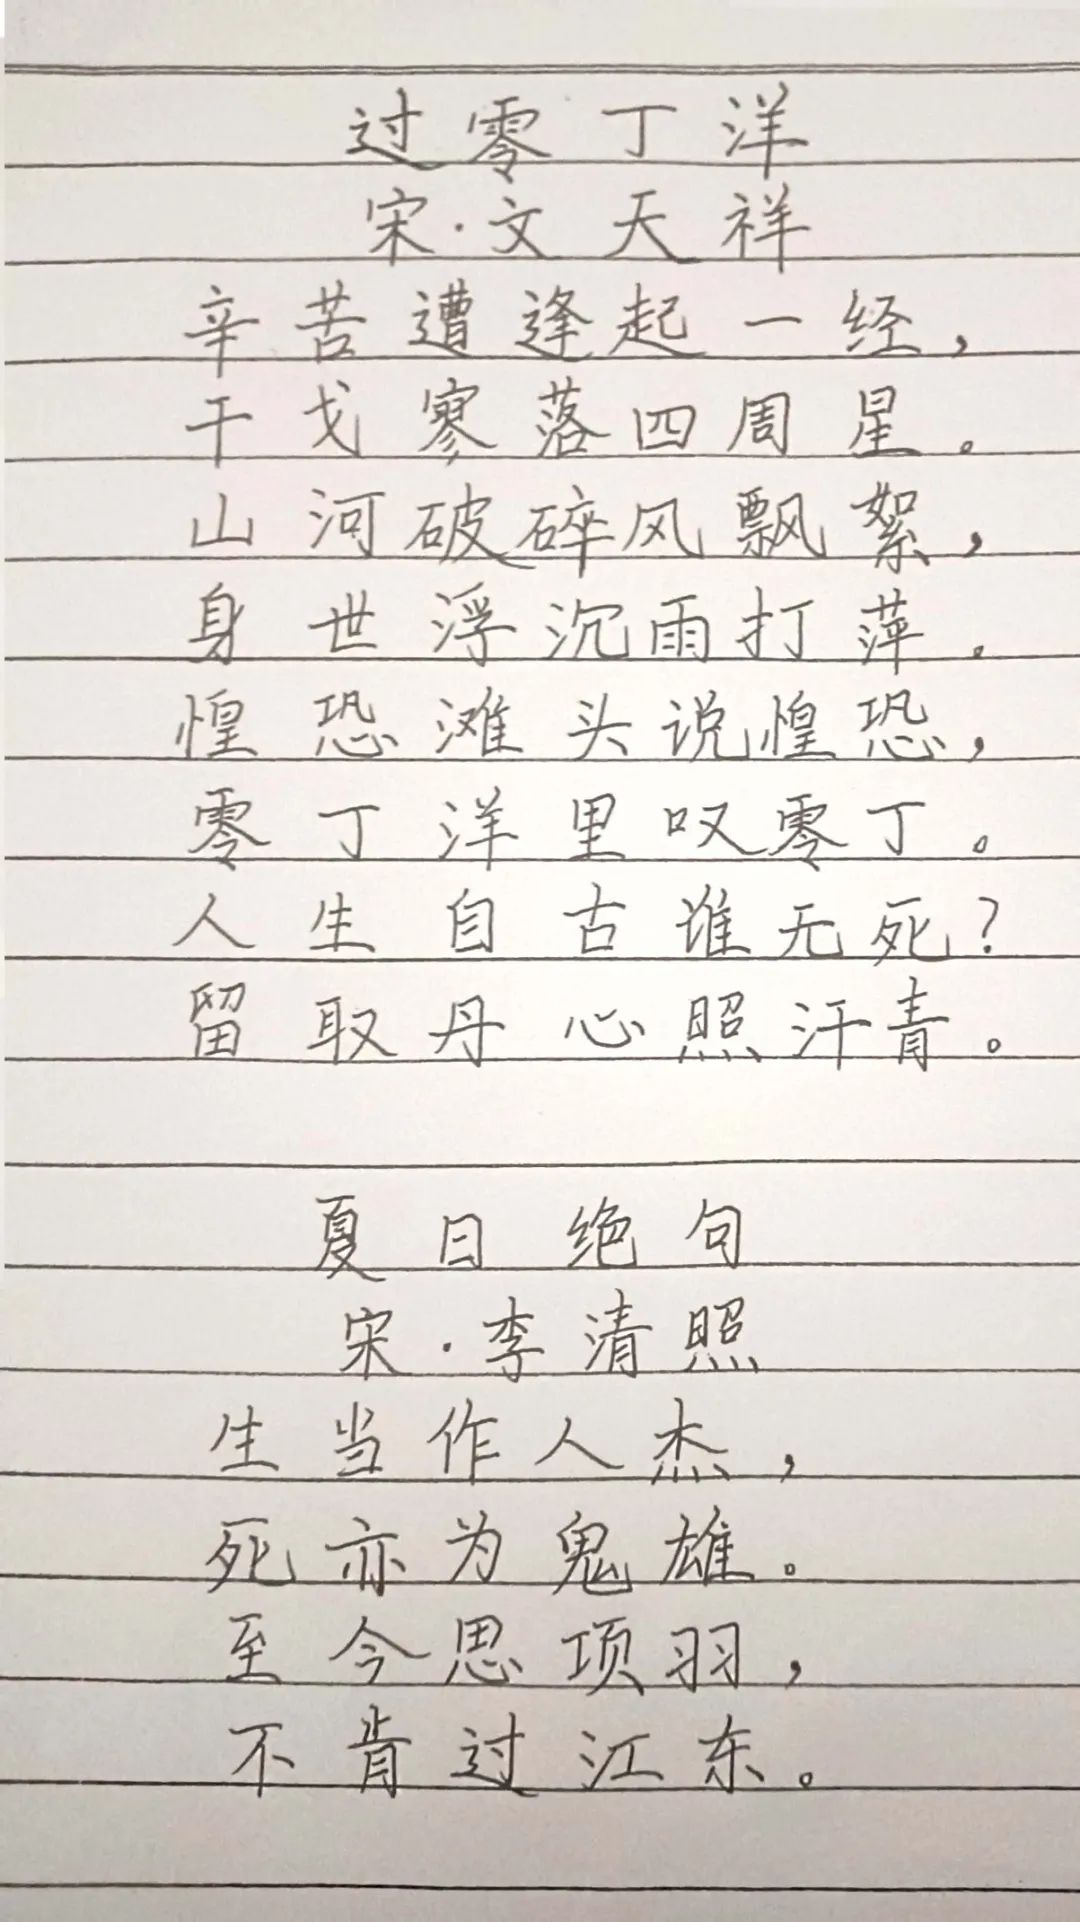 过零丁洋
宋·文天祥
辛苦遭逢起一经，
干戈寥落四周星。
山河破碎风飘絮，
身世浮沉雨打萍。
惶恐滩头说惶恐，
零丁洋里叹零丁。
人生自古谁无死？
留取丹心照汗青。
夏日绝句
宋·李清照
生当作人杰，
死亦为鬼雄。
至今思项羽，
不肯过江东。